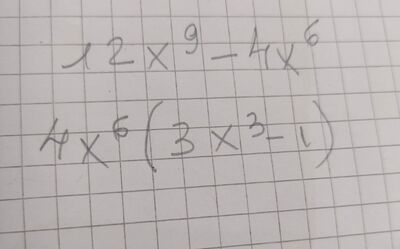 12x⁹-4x⁶
4x⁶(3x³-1)